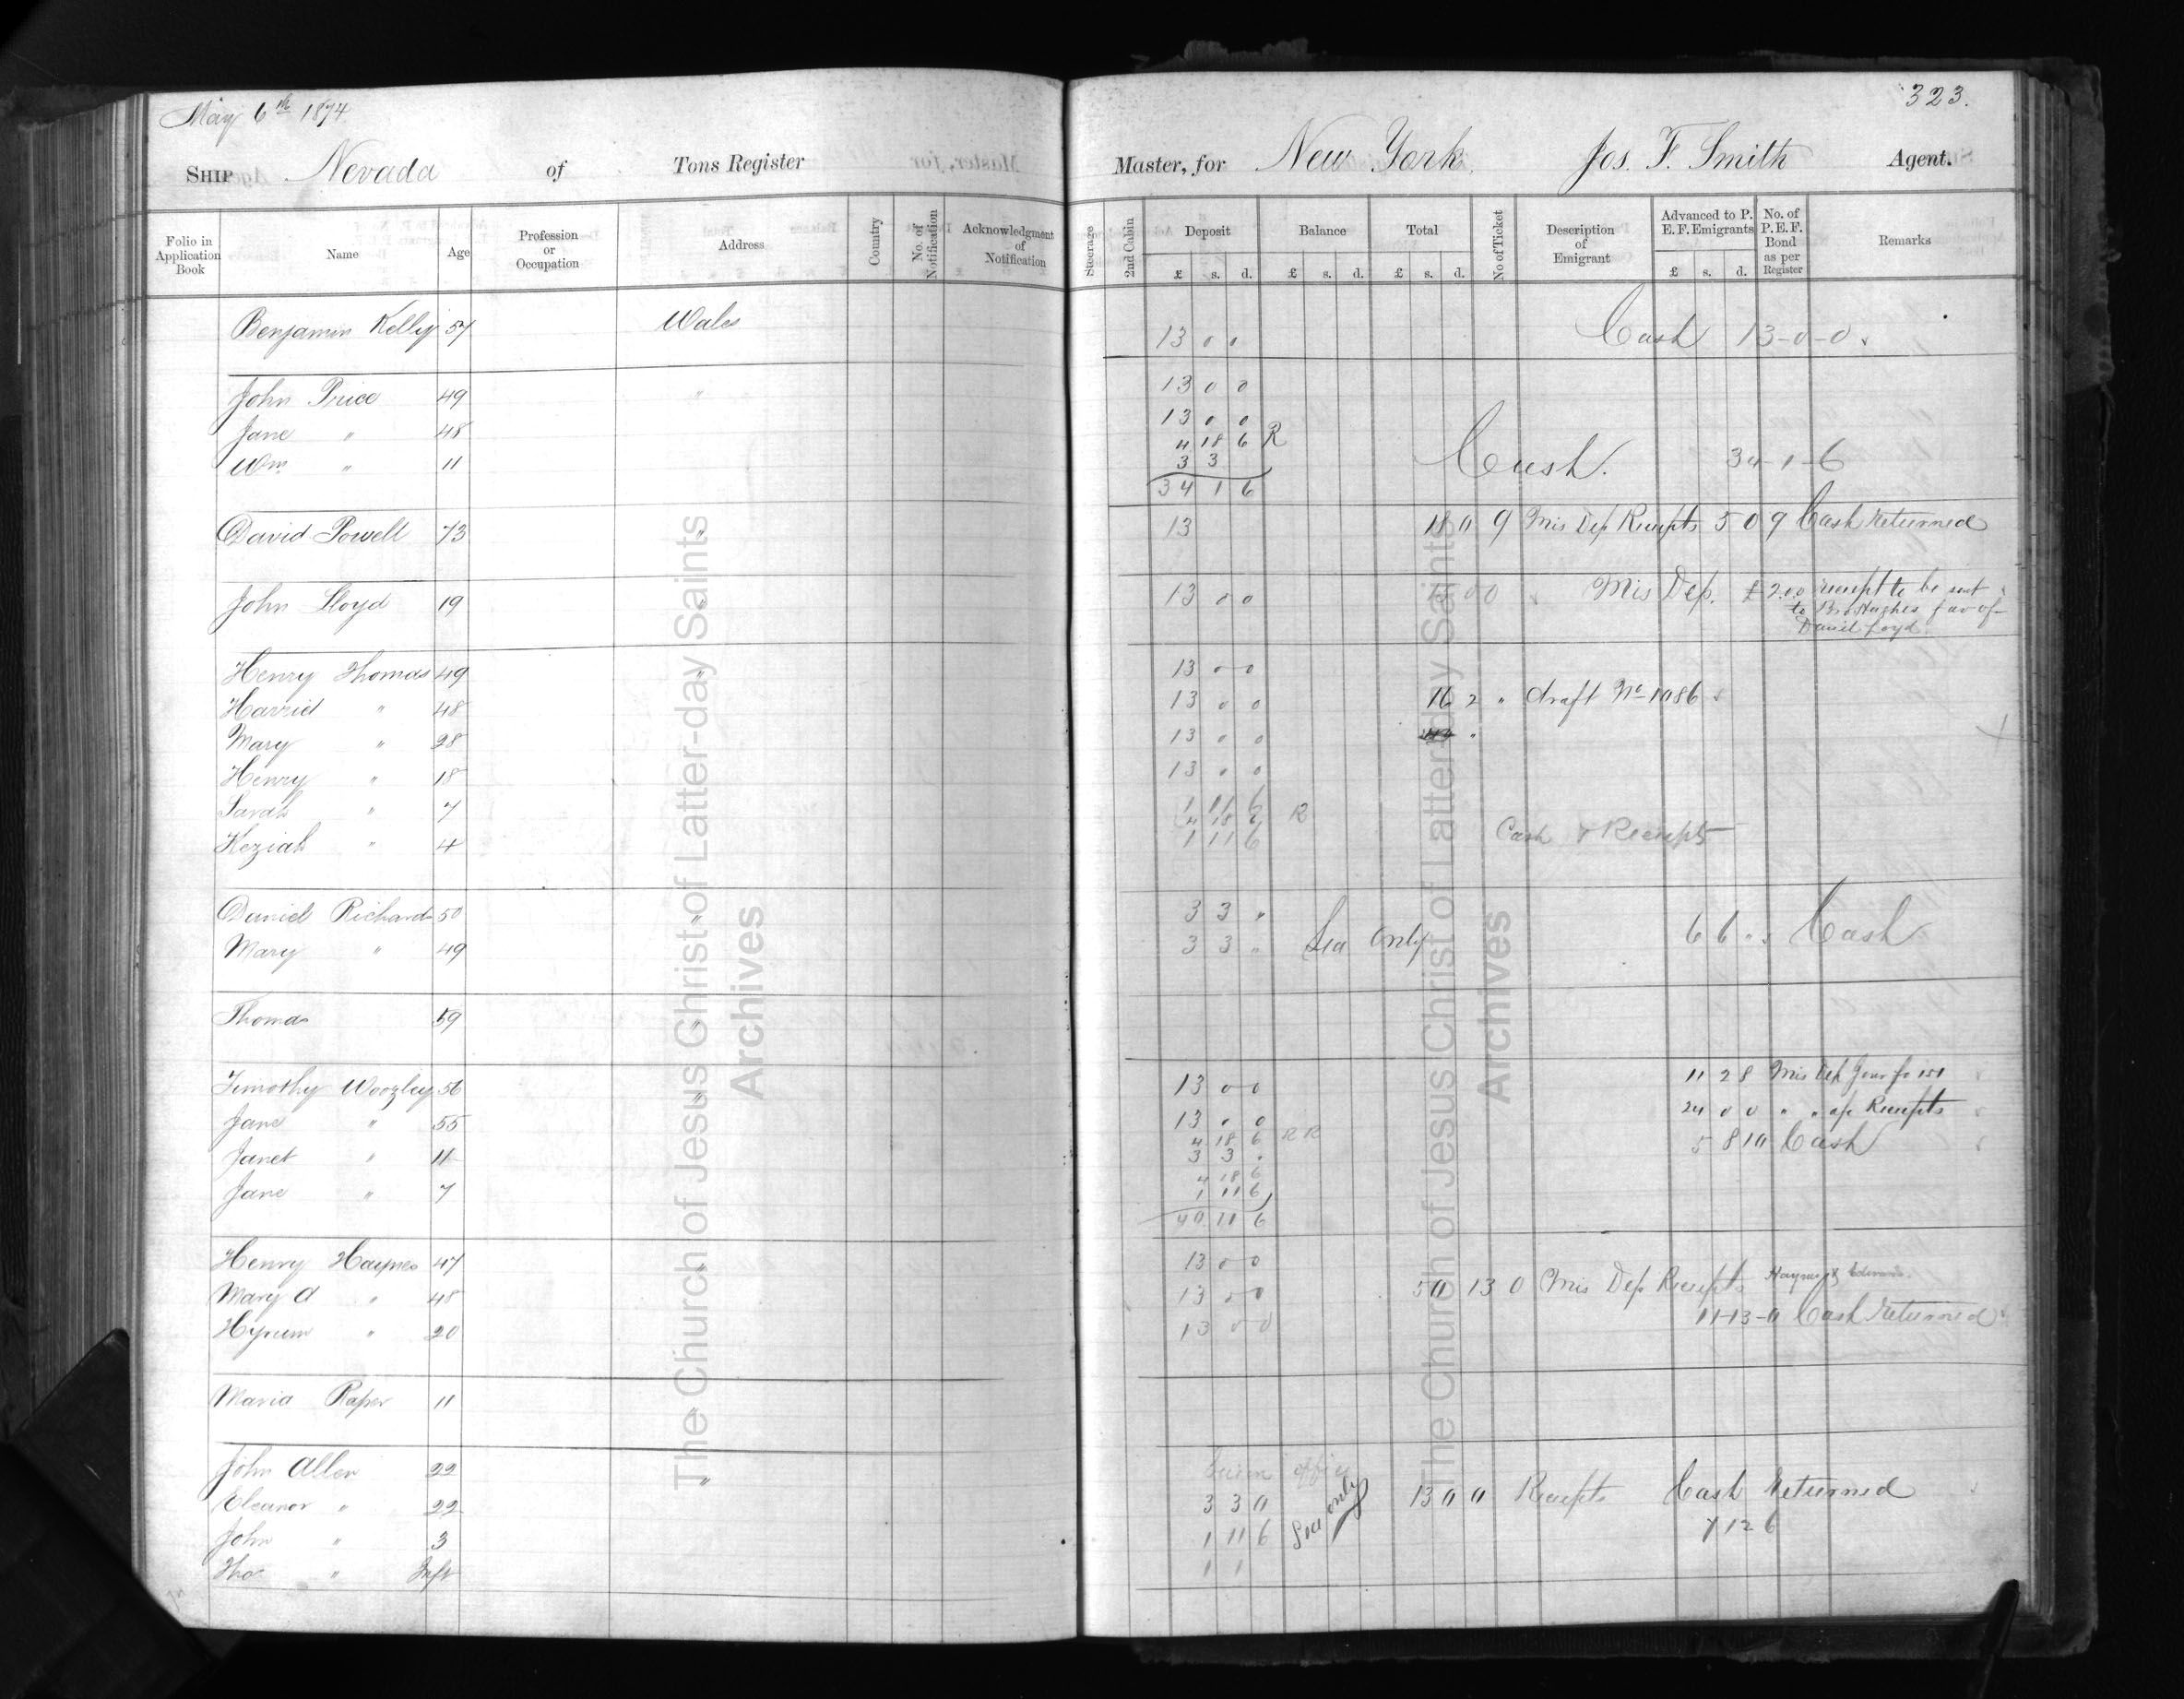 May 6th 1874
SHIP Nevada of Tons Register
Folio in Application Book
Name
Age
Profession or Occupation
Address
Country
No. of Notification
Acknowledgment of Notification
Benjamin Kelly 57 Wales
John Price 49 "
Jane " 48
Wm " 11
David Powell 73 "
John Lloyd 19 "
Henry Thomas 49 "
Harriet " 48
Mary " 28
Henry " 18
Sarah " 7
Keziah " 4
Daniel Richards 50 "
Mary " 49
Thomas 59 "
Timothy Woozley 56 "
Jane " 55
Janet " 11
Jane " 7
Henry Haynes 47 "
Mary A " 48
Hyrum " 20
Maria Raper 11 "
John Allen 22 "
Eleanor " 22
John " 3
Tho " Inft
The Church of Jesus Christ of Latter-day Saints
Archives
323.
Master, for New York. Jos. F. Smith Agent.
Steerage
2nd Cabin
Deposit £ s. d.
Balance £ s. d.
Total £ s. d.
No of Ticket
Description of Emigrant
Advanced to P. E. F. Emigrants £ s. d.
No. of P. E. F. Bond as per Register
Remarks
13 0 0 Cash 13-0-0
13 0 0
13 0 0
4 18 6 R
3 3 Cash. 34-1-6
34 1 6
13 18 0 9 Mis Dep Receipts 5 0 9 Cash returned
13 0 0 Mis Dep. £2.0.0 receipt to be sent
to Bro Hughes fav of
Daniel Loyd
13 0 0
13 0 0 16 2 " draft No 1086
13 0 0
13 0 0
1 11 6
4 18 6 R
1 11 6 Cash & Receipts
3 3 "
3 3 " Sea Only 6 6 " Cash
13 0 0 11 2 8 Mis Dep
13 0 0 24 0 0 " " Receipts
4 18 6 R R
3 3 . 5 8 10 Cash
4 18 6
1 11 6
40 11 6
13 0 0
13 0 0 50 13 0 Mis Dep Receipts
13 0 0 11-13-0 Cash returned
3 3 0 Sea only 13 0 0 Receipts Cash returned
1 11 6 7 12 6
1 1
The Church of Jesus Christ of Latter-day Saints
Archives